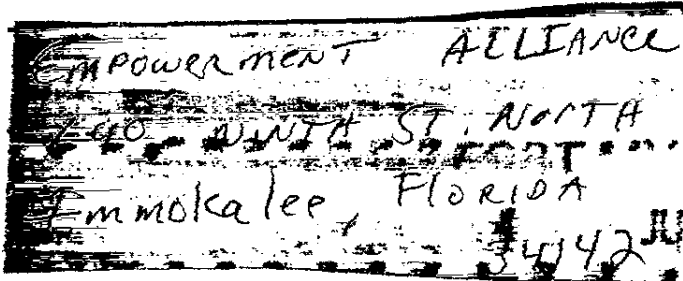 EMPOWERMENT ALLIANCE
NINTH ST. NORTH
Immokalee, FLORIDA
34142